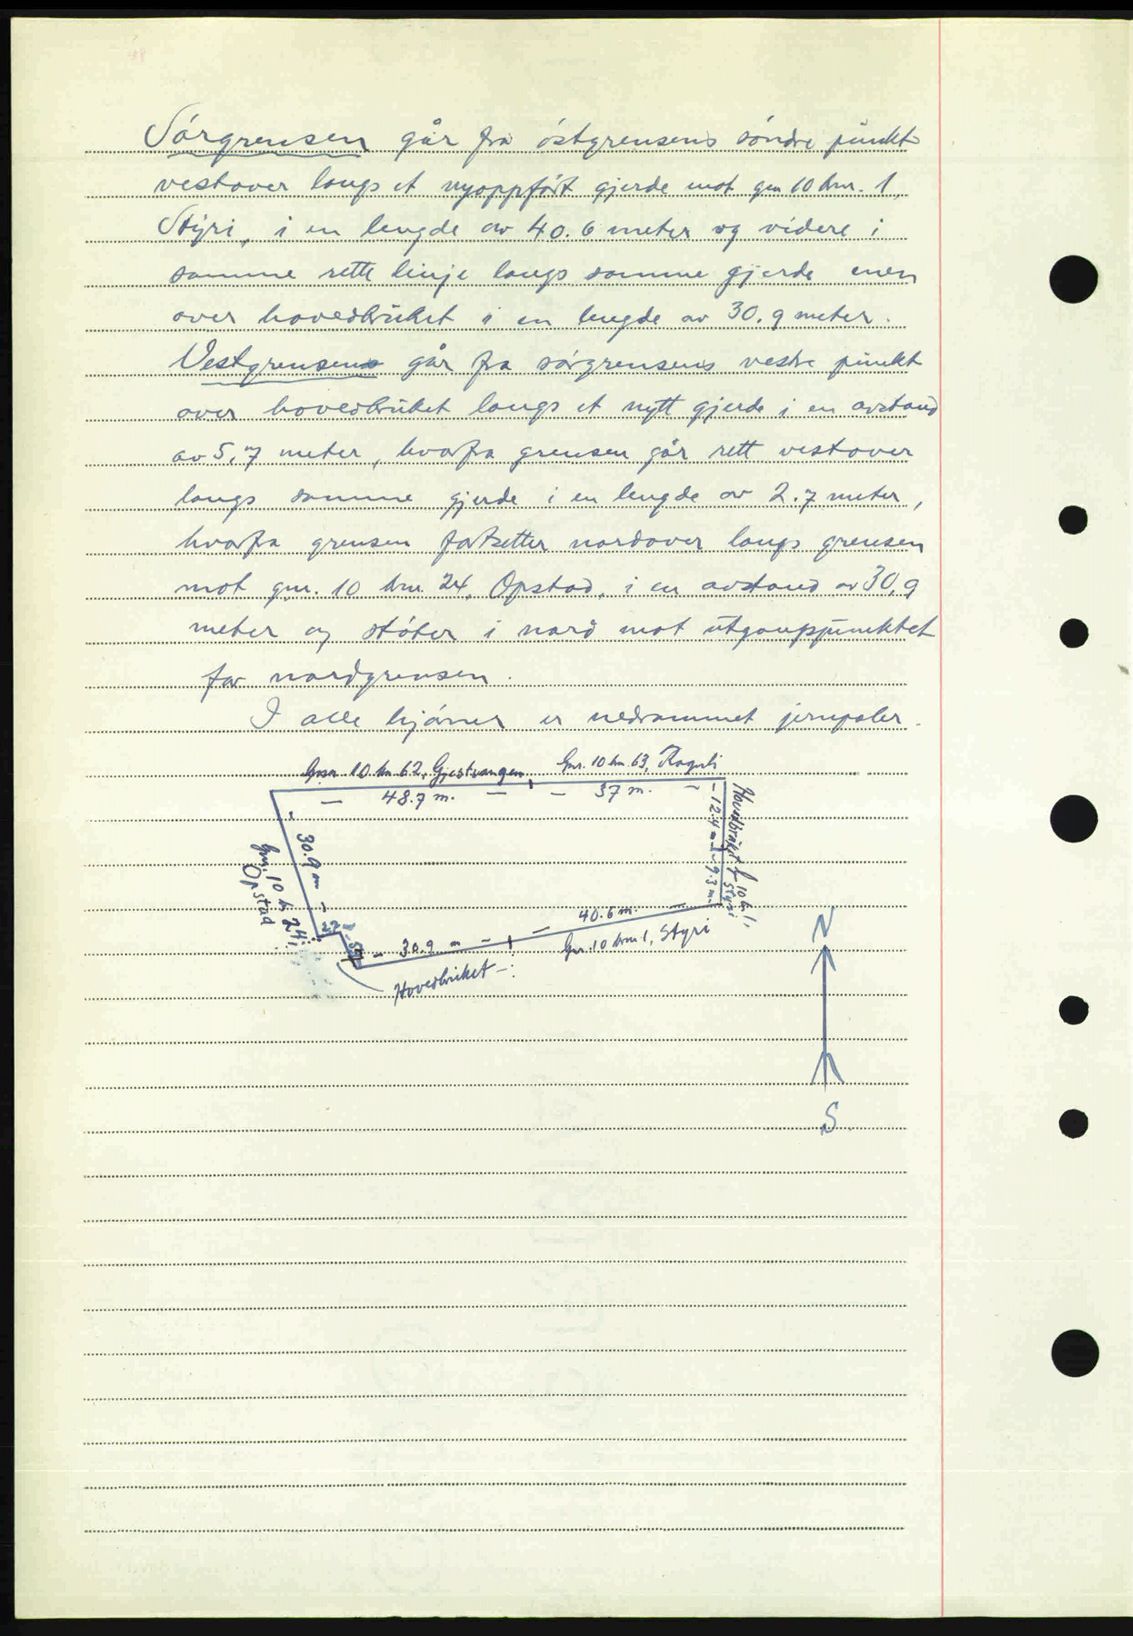 Sørgrensen går fra østgrensens søndre punkt
vestover langs et nyoppført gjerde mot gnr 10 bnr. 1,
Styri, i en lengde av 40.6 meter og videre i
samme rette linje langs samme gjerde enen
over hovedbruket i en lengde av 30.9 meter.
Vestgrensen går fra sørgrensens vestre punkt
over hovedbruket langs et nytt gjerde i en avstand
av 5,7 meter, hvorfra grensen går rett vestover
langs samme gjerde i en lengde av 2.7 meter,
hvorfra grensen fortsetter nordover langs grensen
mot gnr. 10 bnr. 24, Opstad, i en avstand av 30,9
meter og støter i nord mot utgangspunktet
for nordgrensen.
I alle hjørner er nedrammet jernpæler.
Gnr. 10 bn 62, Gjestvangen,
Gnr. 10 bn. 63,
48.7 m.
37 m.
12.4 m
9.3 m.
Hovedbruket
10 bn 1,
Styri
30.9 m
Gnr. 10 bn 24,
Opstad
2.7
5.7
30.9 m
40.6 m.
Gnr. 10 bnr 1, Styri
Hovedbruket
N
S